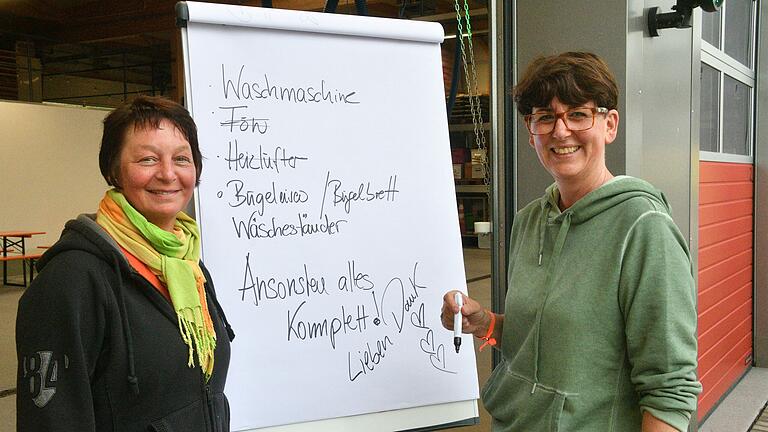 Waschmaschine
Fön
Heizlüfter
Bügeleisen / Bügelbrett
Wäscheständer
Ansonsten alles
Komplett!
Lieben Dank
84